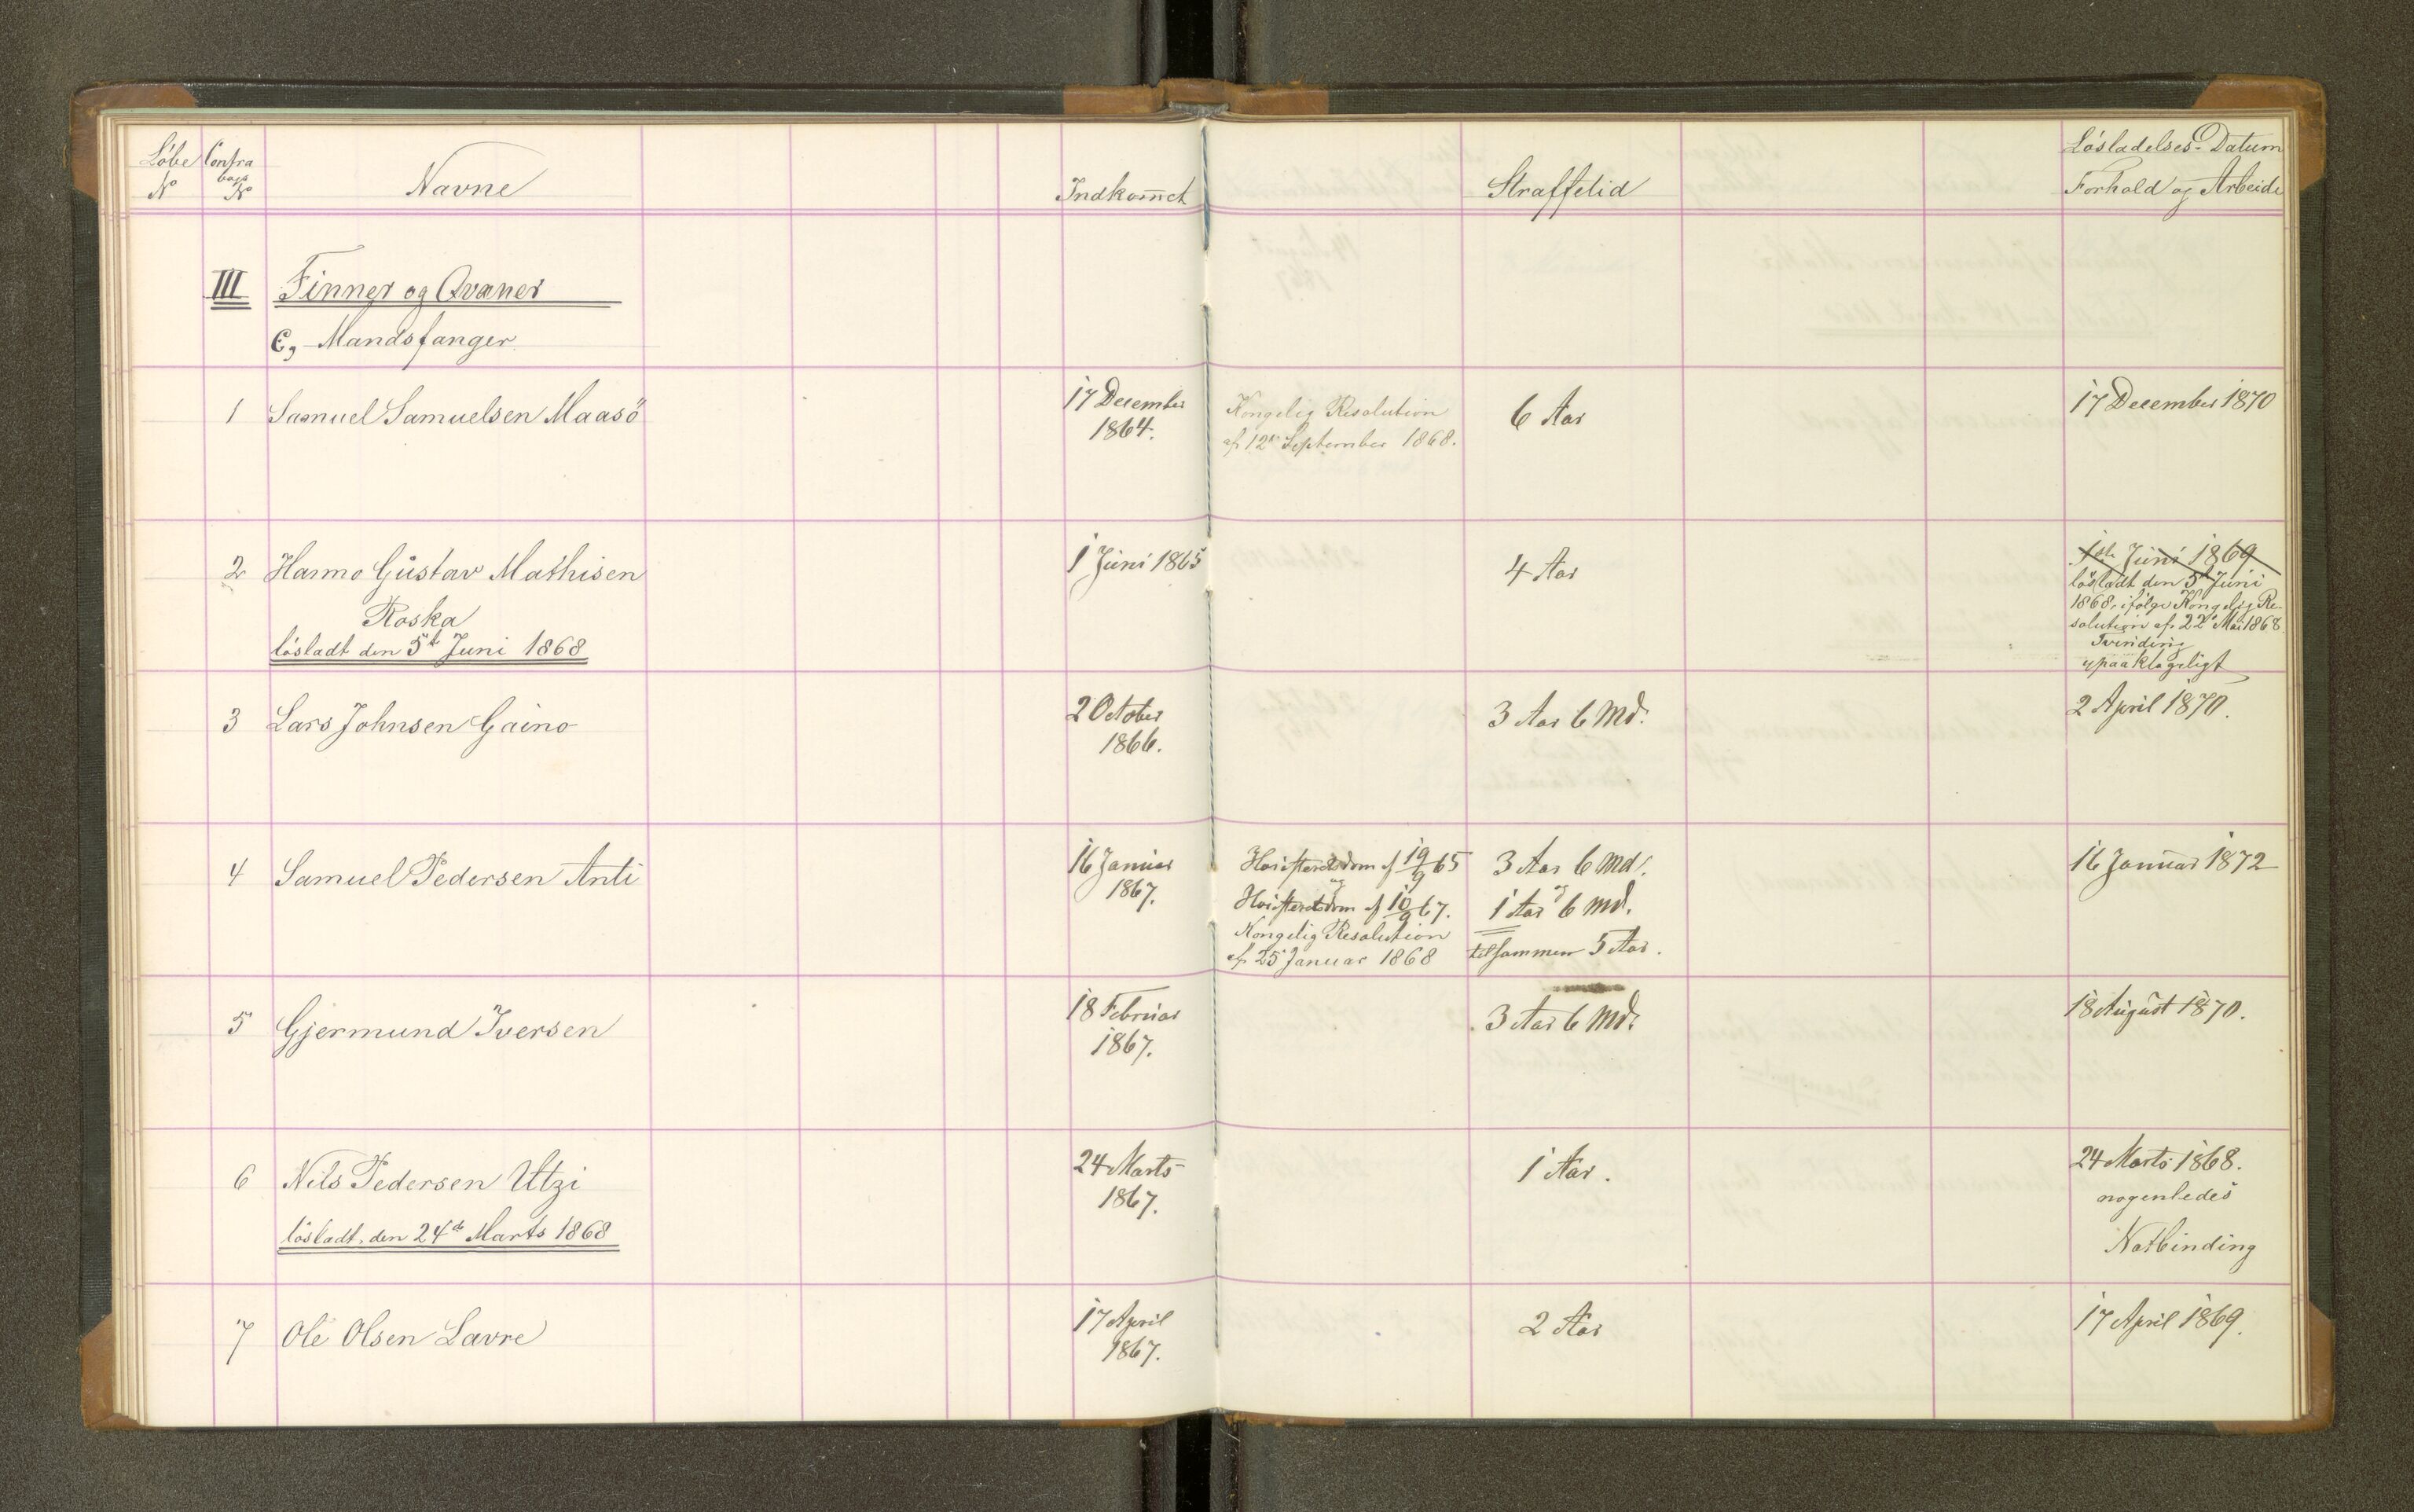 Løbe Contra Navne Indkom̄et Straffetid Løsladelses-Datum
No bogs No Forhold og Arbeide
III Finner og Qvæner
C, Mandsfanger
1 Samuel Samuelsen Maasö 17 December 1864. Kongelig Resolution 6 Aar 17 December 1870
af 12te September 1868.
2 Hanno Gustav Mathisen 1 Juni 1865 4 Aar 1ste Juni 1869
Roska løsladt den 5te Juni
løsladt den 5te Juni 1868 1868, ifølge Kongelig Re-
solution af 22de Mai 1868.
Tvinding
upaaklageligt
3 Lars Johnsen Gaino 2 October 3 Aar 6 Md. 2 April 1870.
1866.
4 Samuel Pedersen Anti 16 Januar Høiesteretsdom af 19/9 65 3 Aar 6 Md. 16 Januar 1872
1867. og og
Høiesteretsdom af 10/9 67. 1 Aar 6 Md.
Kongelig Resolution
af 25 Januar 1868 tilsammen 5 Aar.
5 Gjermund Iversen 18 Februar 3 Aar 6 Md. 18 August 1870.
1867.
6 Nils Pedersen Utzi 24 Marts 1 Aar. 24 Marts 1868.
1867. nogenledes
løsladt, den 24de Marts 1868 Notbinding
7 Ole Olsen Lavre 17 April 2 Aar 17 April 1869.
1867.